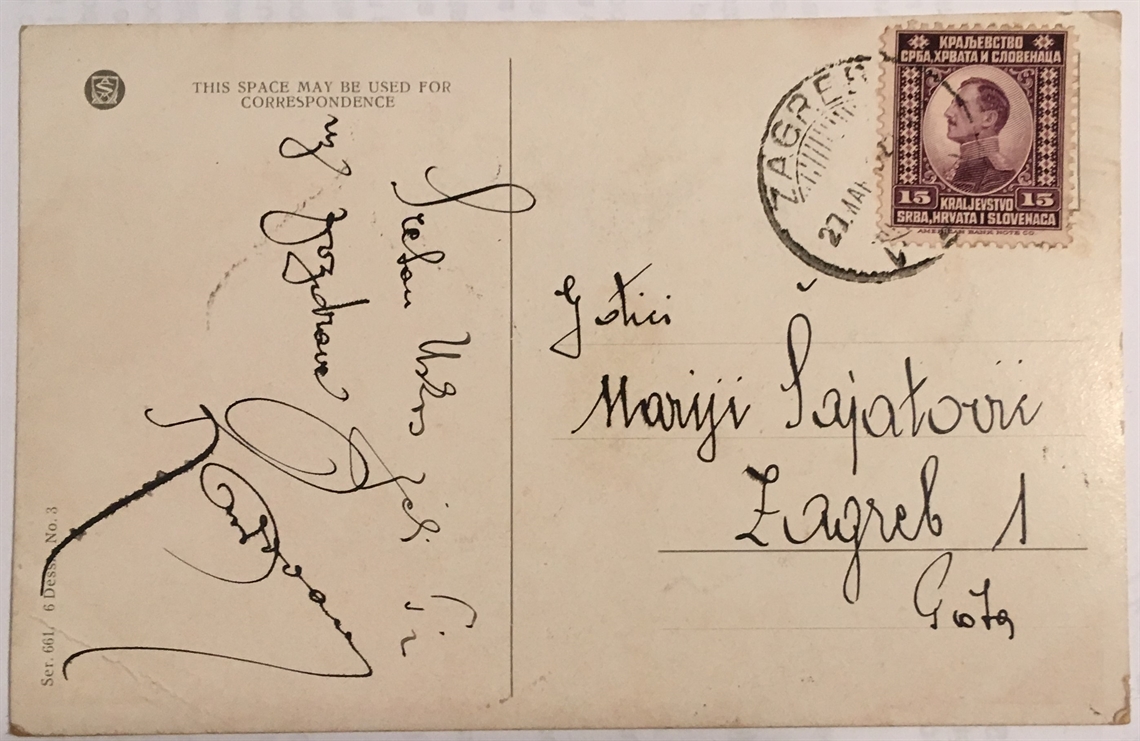 THIS SPACE MAY BE USED FOR
CORRESPONDENCE
Sretan Uskrs želi Ti
uz pozdrave
Ser. 661. 6 Dess. No. 3
ZAGREB
27.MAR
КРАЉЕВСТВО
СРБА, ХРВАТА И СЛОВЕНАЦА
15 15
KRALJEVSTVO
SRBA, HRVATA I SLOVENACA
AMERICAN BANK NOTE CO.
Gđici
Mariji Šajatović
Zagreb 1